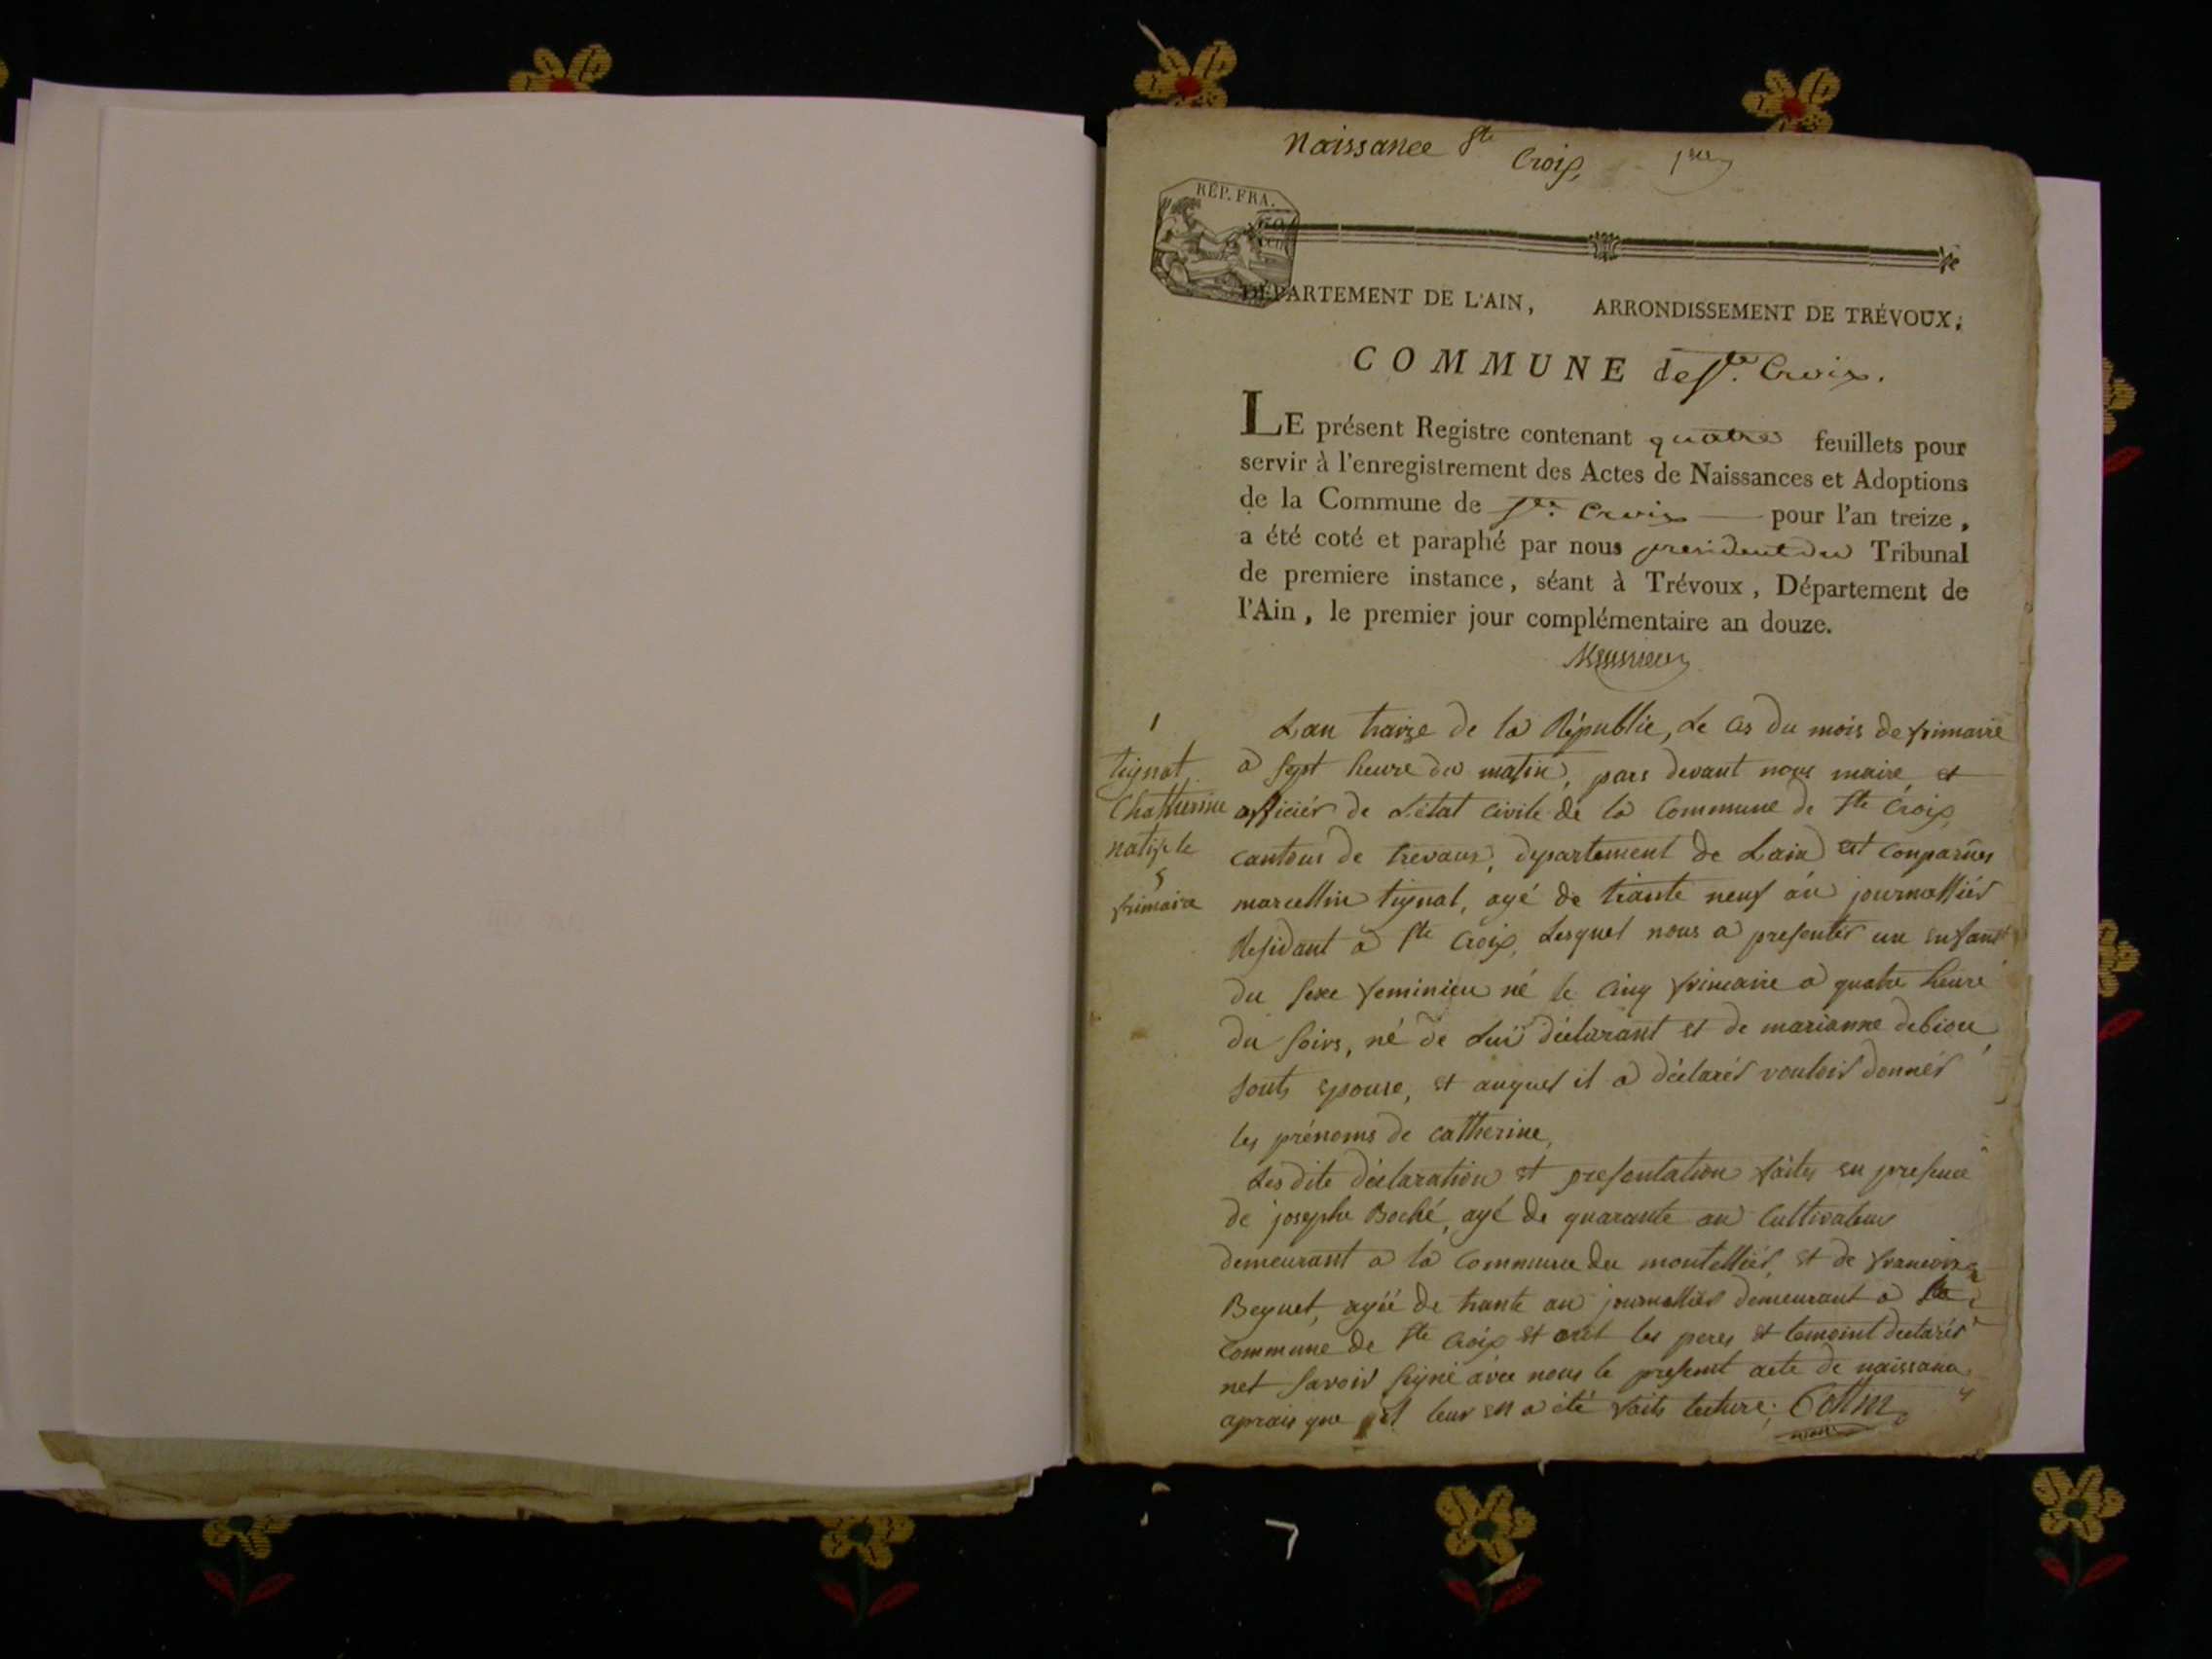 Naissance Ste Croix, 1er
RÉP. FRA.
DÉPARTEMENT DE L'AIN, ARRONDISSEMENT DE TRÉVOUX,
COMMUNE de Ste Croix.
LE présent Registre contenant quatre feuillets pour
servir à l'enregistrement des Actes de Naissances et Adoptions
de la Commune de Ste Croix pour l'an treize,
a été coté et paraphé par nous president du Tribunal
de premiere instance, séant à Trévoux, Département de
l'Ain, le premier jour complémentaire an douze.
1
tignat
Chatterine
natif le
5
frimaire
Lan traize de la Républic, Le du mois de frimaire
a sept heure du matin, pars devant nous maire et
officiér de L'état civile de la Commune de Ste Croix
cantons de trevoux, departement de Lain est comparus
marcellin tignat, agé de trante neuf an journalliér
Residant a Ste Croix, Lesquel nous a presentér un enfant
du sexe feminien né le cinq frimaire a quatre heure
du soirs, né de Lui déclarant et de marianne debiou
sonts epouse, et auquel il a déclarér vouloir donnér
les prénoms de catherine,
Les dite déclaration et presentation faites en presence
de josephe Boché, agé de quarante an Cultivateur
demeurant a la Commune du montelliér, et de francoise
Beguet, agéé de trante an journalliér demeurant a
Commune de Ste Croix et ont les peres et temoint declarér
net savoir signé avec nous le present acte de naissance
aprais que leur en a été faits lecture. Collin